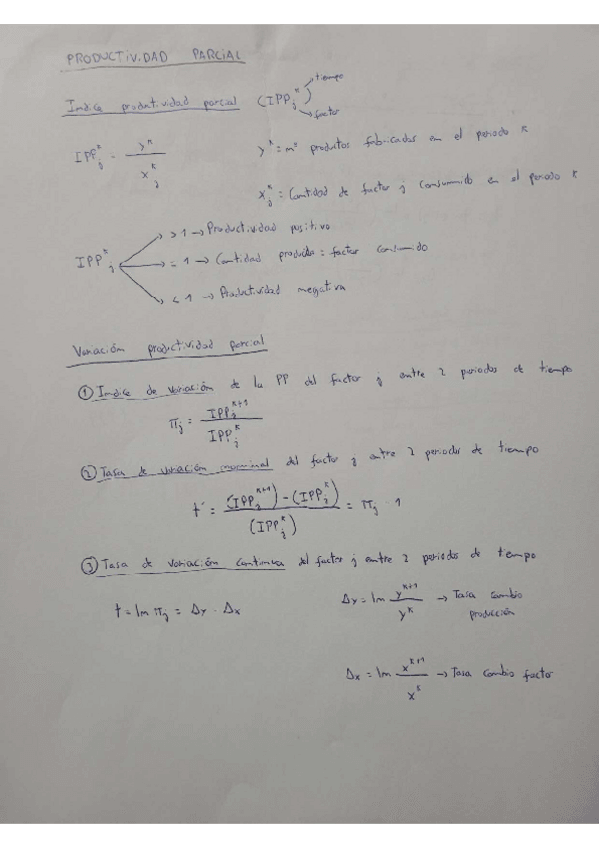 PRODUCTIVIDAD PARCIAL
tiempo
Indice productividad parcial (IPP_j^k)
factor
IPP_j^k = y^k / x_j^k
y^k = nº productos fabricados en el periodo k
x_j^k = Cantidad de factor j consumido en el periodo k
> 1 → Productividad positiva
IPP_j^k = 1 → Cantidad producto = factor consumido
< 1 → Productividad negativa
Variación productividad parcial
① Indice de variación de la PP del factor j entre 2 periodos de tiempo
π_j = IPP_j^{k+1} / IPP_j^k
② Tasa de variación nominal del factor j entre 2 periodos de tiempo
t' = ((IPP_j^{k+1}) - (IPP_j^k)) / (IPP_j^k) = π_j - 1
③ Tasa de variación continua del factor j entre 2 periodos de tiempo
t = ln π_j = Δy - Δx
Δy = ln y^{k+1} / y^k → Tasa cambio
producción
Δx = ln x^{k+1} / x^k → Tasa cambio factor